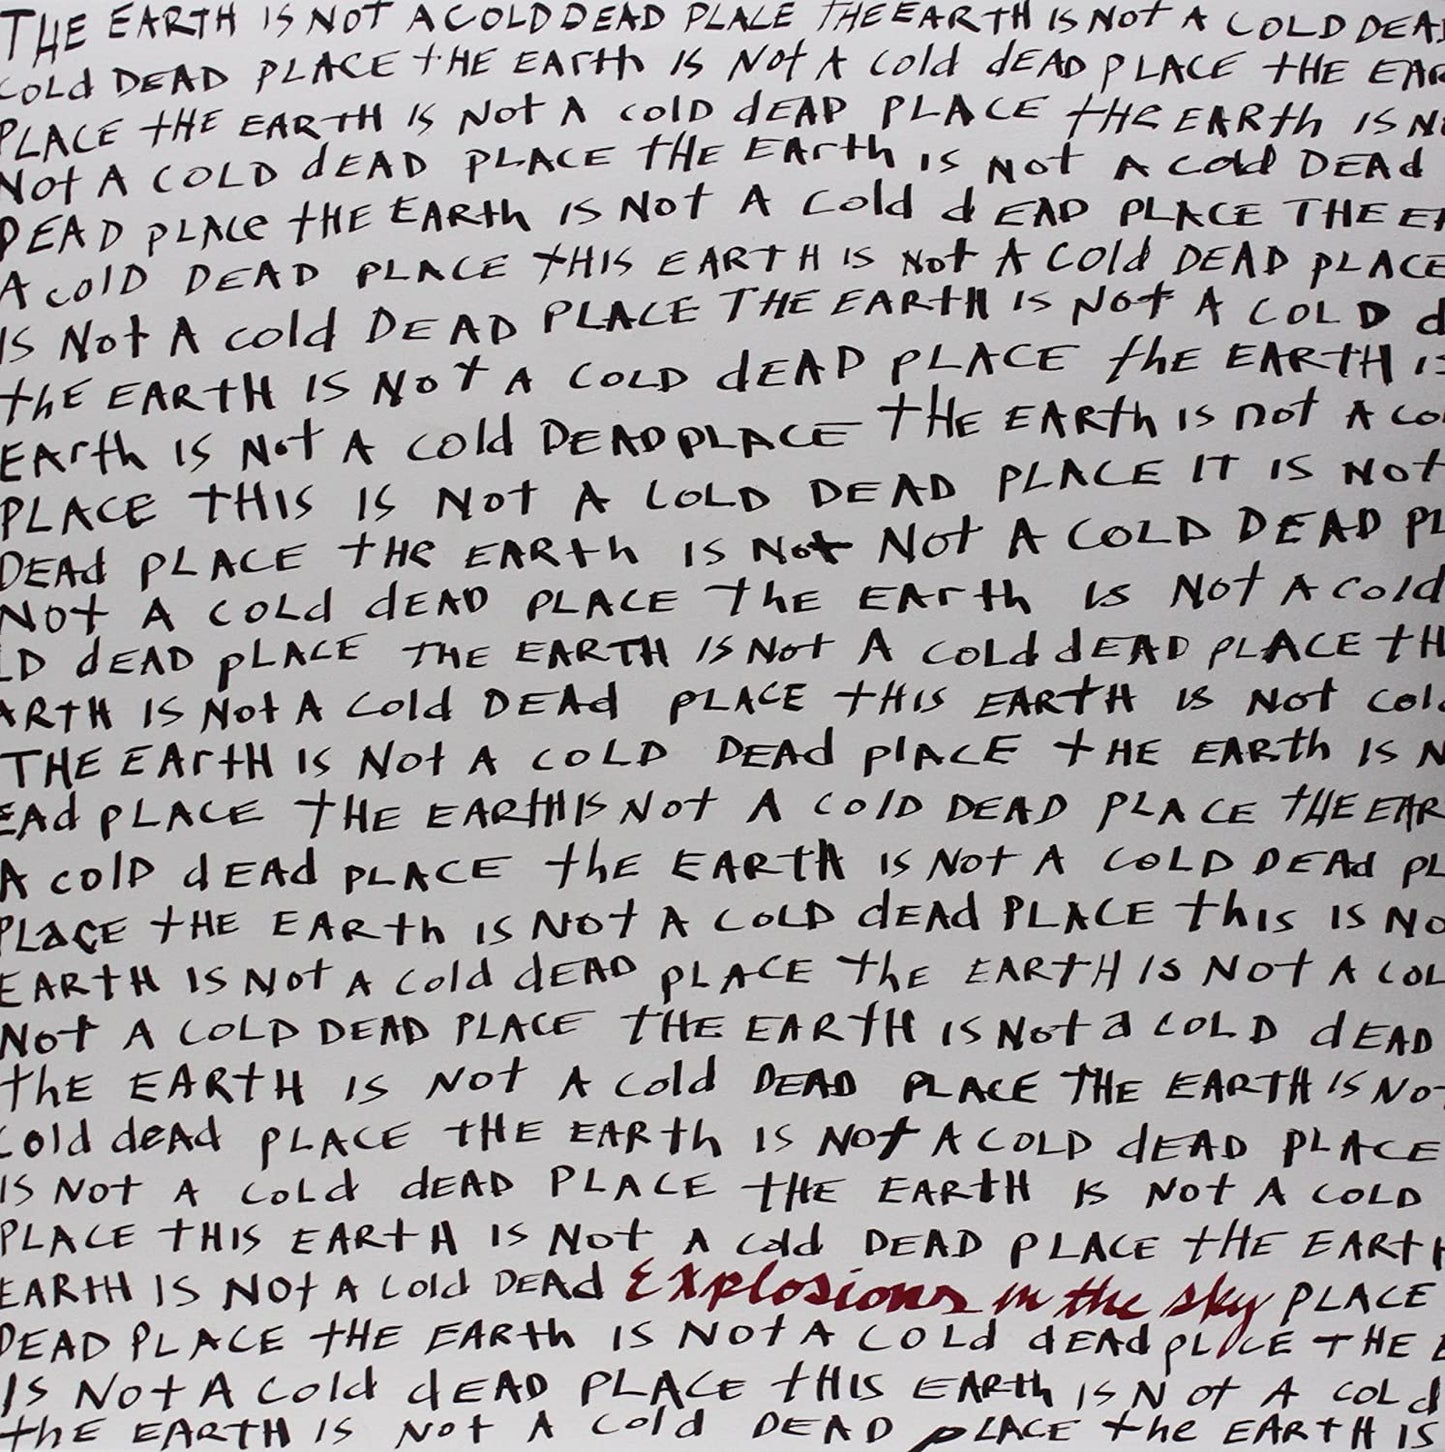 THE EARTH IS NOT A COLD DEAD PLACE THE EARTH IS NOT A COLD DEAD
COLd DEAD PLACE tHE EArth IS Not A cold dEAD PLACE tHE EAR
PLACE tHE EARTH IS Not A cold dEAD PLACE tHe EARth IS N
Not A COLD dEAD PLACE tHE EArth is Not A Cold DEAd
DEAD PLAce tHE EARth IS Not A Cold dEAD PLACE THE E
A colD DEAD PLACE tHIS EARTH IS Not A Cold DEAD PLACE
IS Not A cold DEAD PLACE THE EARtH IS Not A COLD d
thE EARtH IS Not A COLD dEAD PLACE thE EARtH I
EArth IS Not A cold DEAD PLACE tHE EARth IS not A co
PLACE tHIS IS Not A COLD DEAD PLACE IT IS Not
DEAd PLACE tHe EARth IS Not Not A COLD DEAD PL
Not A COLd dEAD PLACE thE EArth IS Not A Cold
LD dEAD pLACE THE EARTH IS Not A COLd dEAD PLACE tH
ARtH IS Not A Cold DEAd PLACE tHIS EARtH IS Not Col
THE EArtH IS Not A COLD DEAd plACE tHE EARth IS N
EAd PLACE tHE EARtH IS Not A ColD DEAD PLACE tHE EAR
A colD dEAd PLACE thE EARtH IS Not A COLD DEAd PL
PLaCE tHE EARth IS Not A COLD dEAd PLACE this IS No
EARtH IS Not A Cold dEAD PLACE the EARtH IS Not A COL
Not A COLD DEAD PLACE tHE EARtH IS Not a COLD dEAD
thE EARtH IS Not A Cold DEAD PLACE THE EARTH IS No
Cold deAd PLACE tHE EARth IS Not A COLD dEAD PLACE
IS Not A COLd dEAD PLACE tHE EARtH IS Not A COLD
PLACE tHIS EARtH IS Not A Cold DEAD PLACE tHE EARt
EARtH IS Not A Cold DEAd Explosions in the sky PLACE
DEAD PLACE tHE EARth IS Not A COLd dEAd pLACE THE E
IS Not A Cold dEAD PLACE tHIS EARth IS Not A COLd
thE EARTH IS Not A Cold DEAD PLACE the EARTH IS